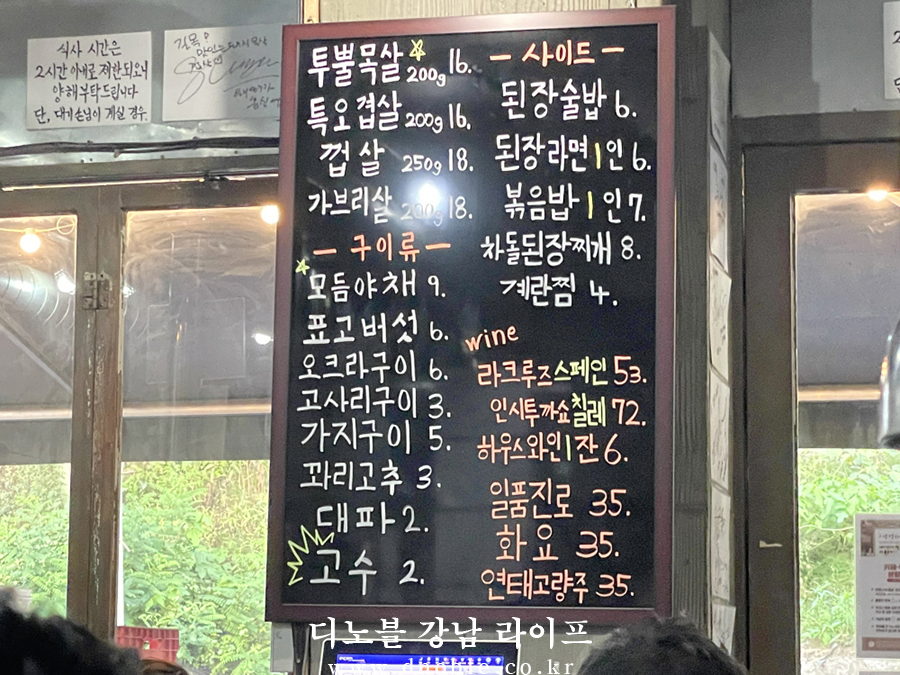 식사 시간은
2시간 이내로 제한되오니
양해부탁드립니다
단, 대기손님이 계실 경우.
투뿔목살 200g 16.
특오겹살 200g 16.
껍살 250g 18.
가브리살 200g 18.
- 구이류 -
모듬야채 9.
표고버섯 6.
오크라구이 6.
고사리구이 3.
가지구이 5.
꽈리고추 3.
대파 2.
고수 2.
- 사이드 -
된장술밥 6.
된장라면 1인 6.
볶음밥 1인 7.
차돌된장찌개 8.
계란찜 4.
wine
라크루즈스페인 53.
인시투까쇼칠레 72.
하우스와인 1잔 6.
일품진로 35.
화요 35.
연태고량주 35.
디노블 강남 라이프